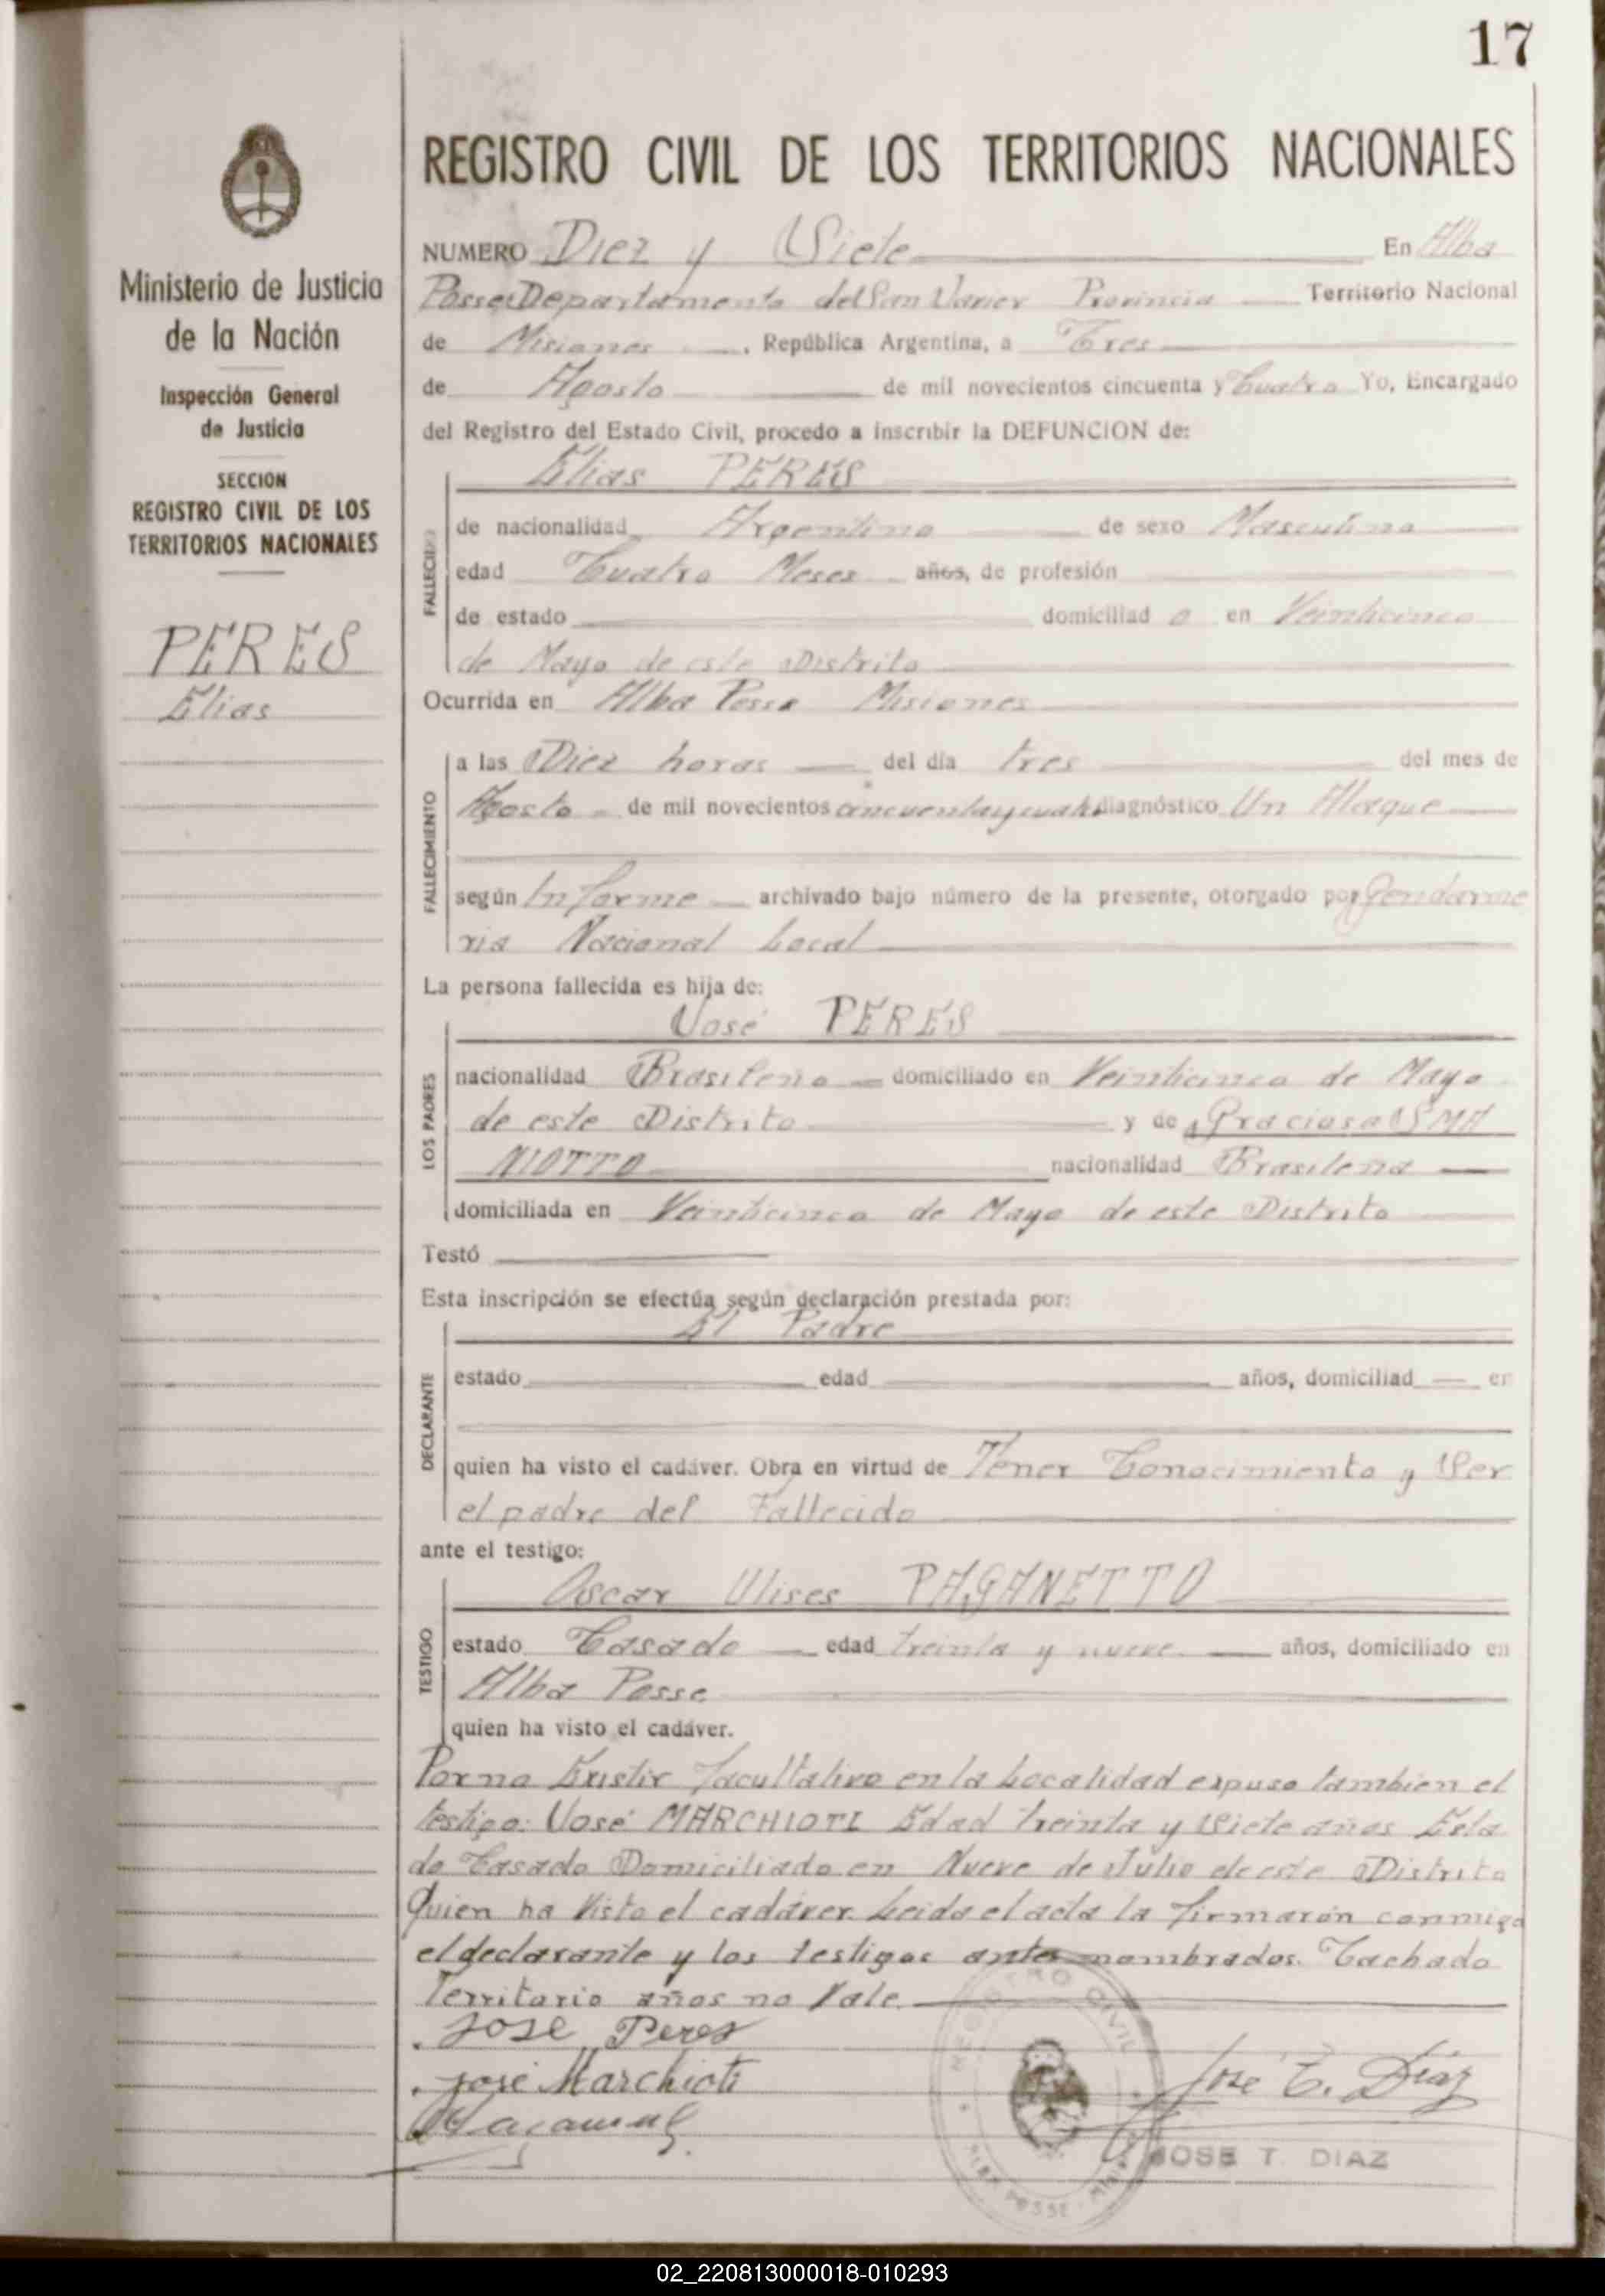 17
REGISTRO CIVIL DE LOS TERRITORIOS NACIONALES
Ministerio de Justicia
de la Nación
Inspección General
de Justicia
SECCION
REGISTRO CIVIL DE LOS
TERRITORIOS NACIONALES
PERES
Elias
NUMERO Diez y Siete En Alba
Posse Departamento del San Javier Provincia Territorio Nacional
de Misiones , República Argentina, a Tres
de Agosto de mil novecientos cincuenta y Cuatro Yo, Encargado
del Registro del Estado Civil, procedo a inscribir la DEFUNCION de:
Elias PERES
FALLECIDO
de nacionalidad Argentino de sexo Masculino
edad Cuatro Meses años, de profesión
de estado domiciliad o en Veinticinco
de Mayo de este Distrito
Ocurrida en Alba Posse Misiones
FALLECIMIENTO
a las Diez horas del día tres del mes de
Agosto de mil novecientos cincuenta y cuatro diagnóstico Un Ataque
según Informe archivado bajo número de la presente, otorgado por Gendarme
ria Nacional Local
La persona fallecida es hija de:
José PERES
LOS PADRES
nacionalidad Brasileño domiciliado en Veinticinco de Mayo
de este Distrito y de Graciosa SMA
NIOTTO nacionalidad Brasileña
domiciliada en Veinticinco de Mayo de este Distrito
Testó
Esta inscripción se efectúa según declaración prestada por:
El Padre
DECLARANTE
estado edad años, domiciliad en
quien ha visto el cadáver. Obra en virtud de Tener Conocimiento y Ser
el padre del Fallecido
ante el testigo:
Oscar Ulises PAGANETTO
TESTIGO
estado Casado edad treinta y nueve años, domiciliado en
Alba Posse
quien ha visto el cadáver.
Por no Existir Facultativo en la Localidad expuso tambien el
testigo: José MARCHIOTI Edad treinta y Siete años Esta
do Casado Domiciliado en Nueve de Julio de este Distrito
Quien ha Visto el cadáver. Leida el acta la firmarón conmigo
el declarante y los testigos antes nombrados. Tachado
Territorio años no Vale.
José Peres
José Marchioti
José T. Díaz
JOSE T. DIAZ
REGISTRO CIVIL
ALBA POSSE
02_220813000018-010293